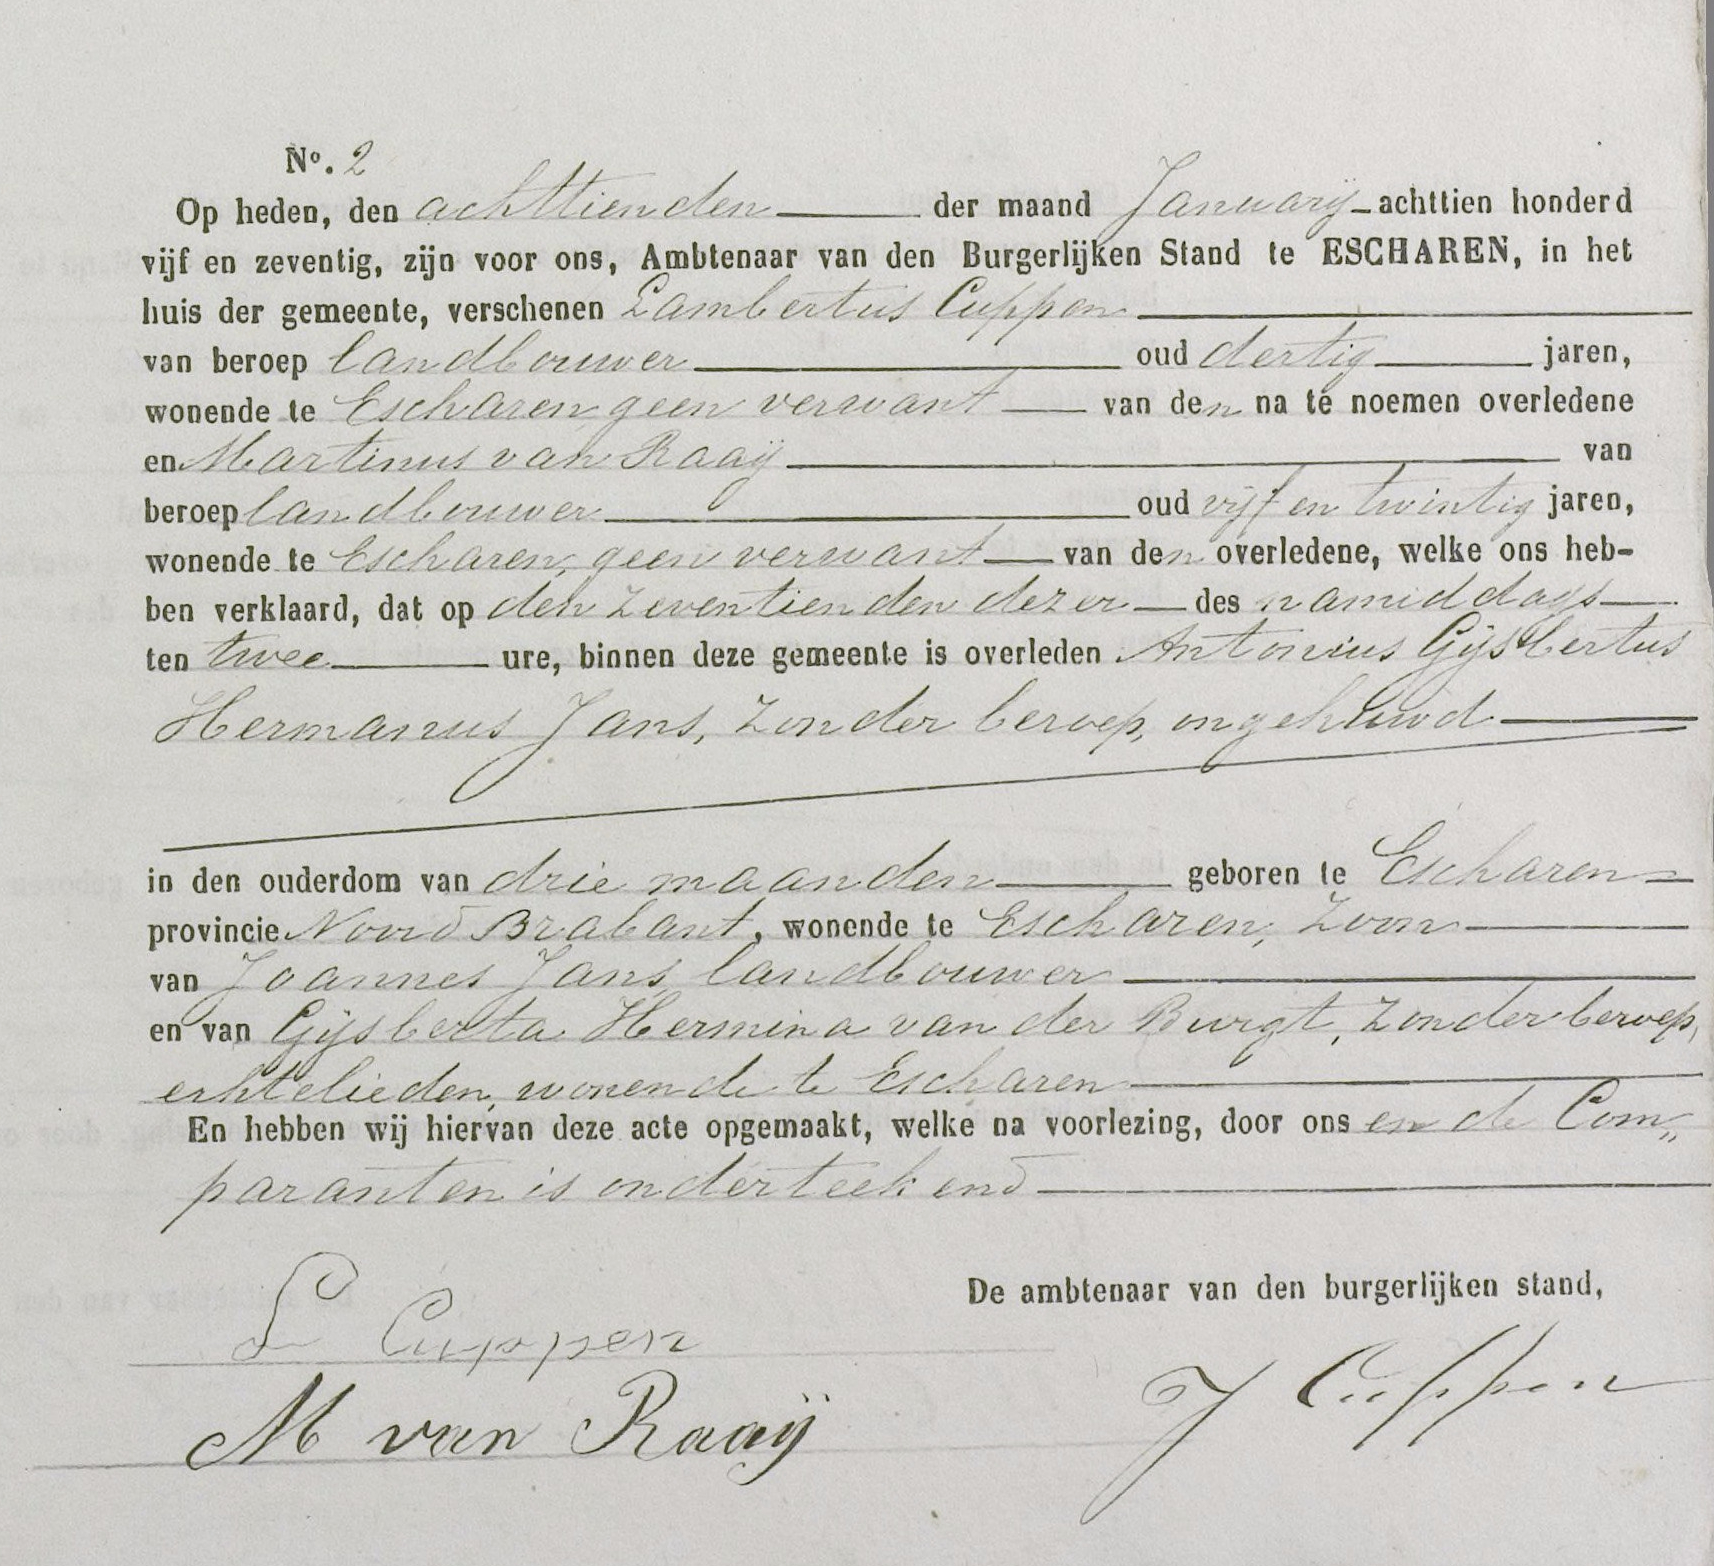 No. 2
Op heden, den achttienden der maand Januarij achttien honderd
vijf en zeventig, zijn voor ons, Ambtenaar van den Burgerlijken Stand te ESCHAREN, in het
huis der gemeente, verschenen Lambertus Cuppen
van beroep landbouwer oud dertig jaren,
wonende te Escharen, geen verwant van den na te noemen overledene
en Martinus van Raaij van
beroep landbouwer oud vijf en twintig jaren,
wonende te Escharen, geen verwant van den overledene, welke ons heb-
ben verklaard, dat op den zeventienden dezer des namiddags
ten twee ure, binnen deze gemeente is overleden Antonius Gijsbertus
Hermanus Jans, zonder beroep, ongehuwd
in den ouderdom van drie maanden geboren te Escharen
provincie Noord Brabant, wonende te Escharen, zoon
van Joannes Jans landbouwer
en van Gijsberta Hermina van der Burgt, zonder beroep,
echtelieden, wonende te Escharen
En hebben wij hiervan deze acte opgemaakt, welke na voorlezing, door ons en de Com„
paranten is onderteekend
De ambtenaar van den burgerlijken stand,
L Cuppen
J Cuppen
M van Raaij